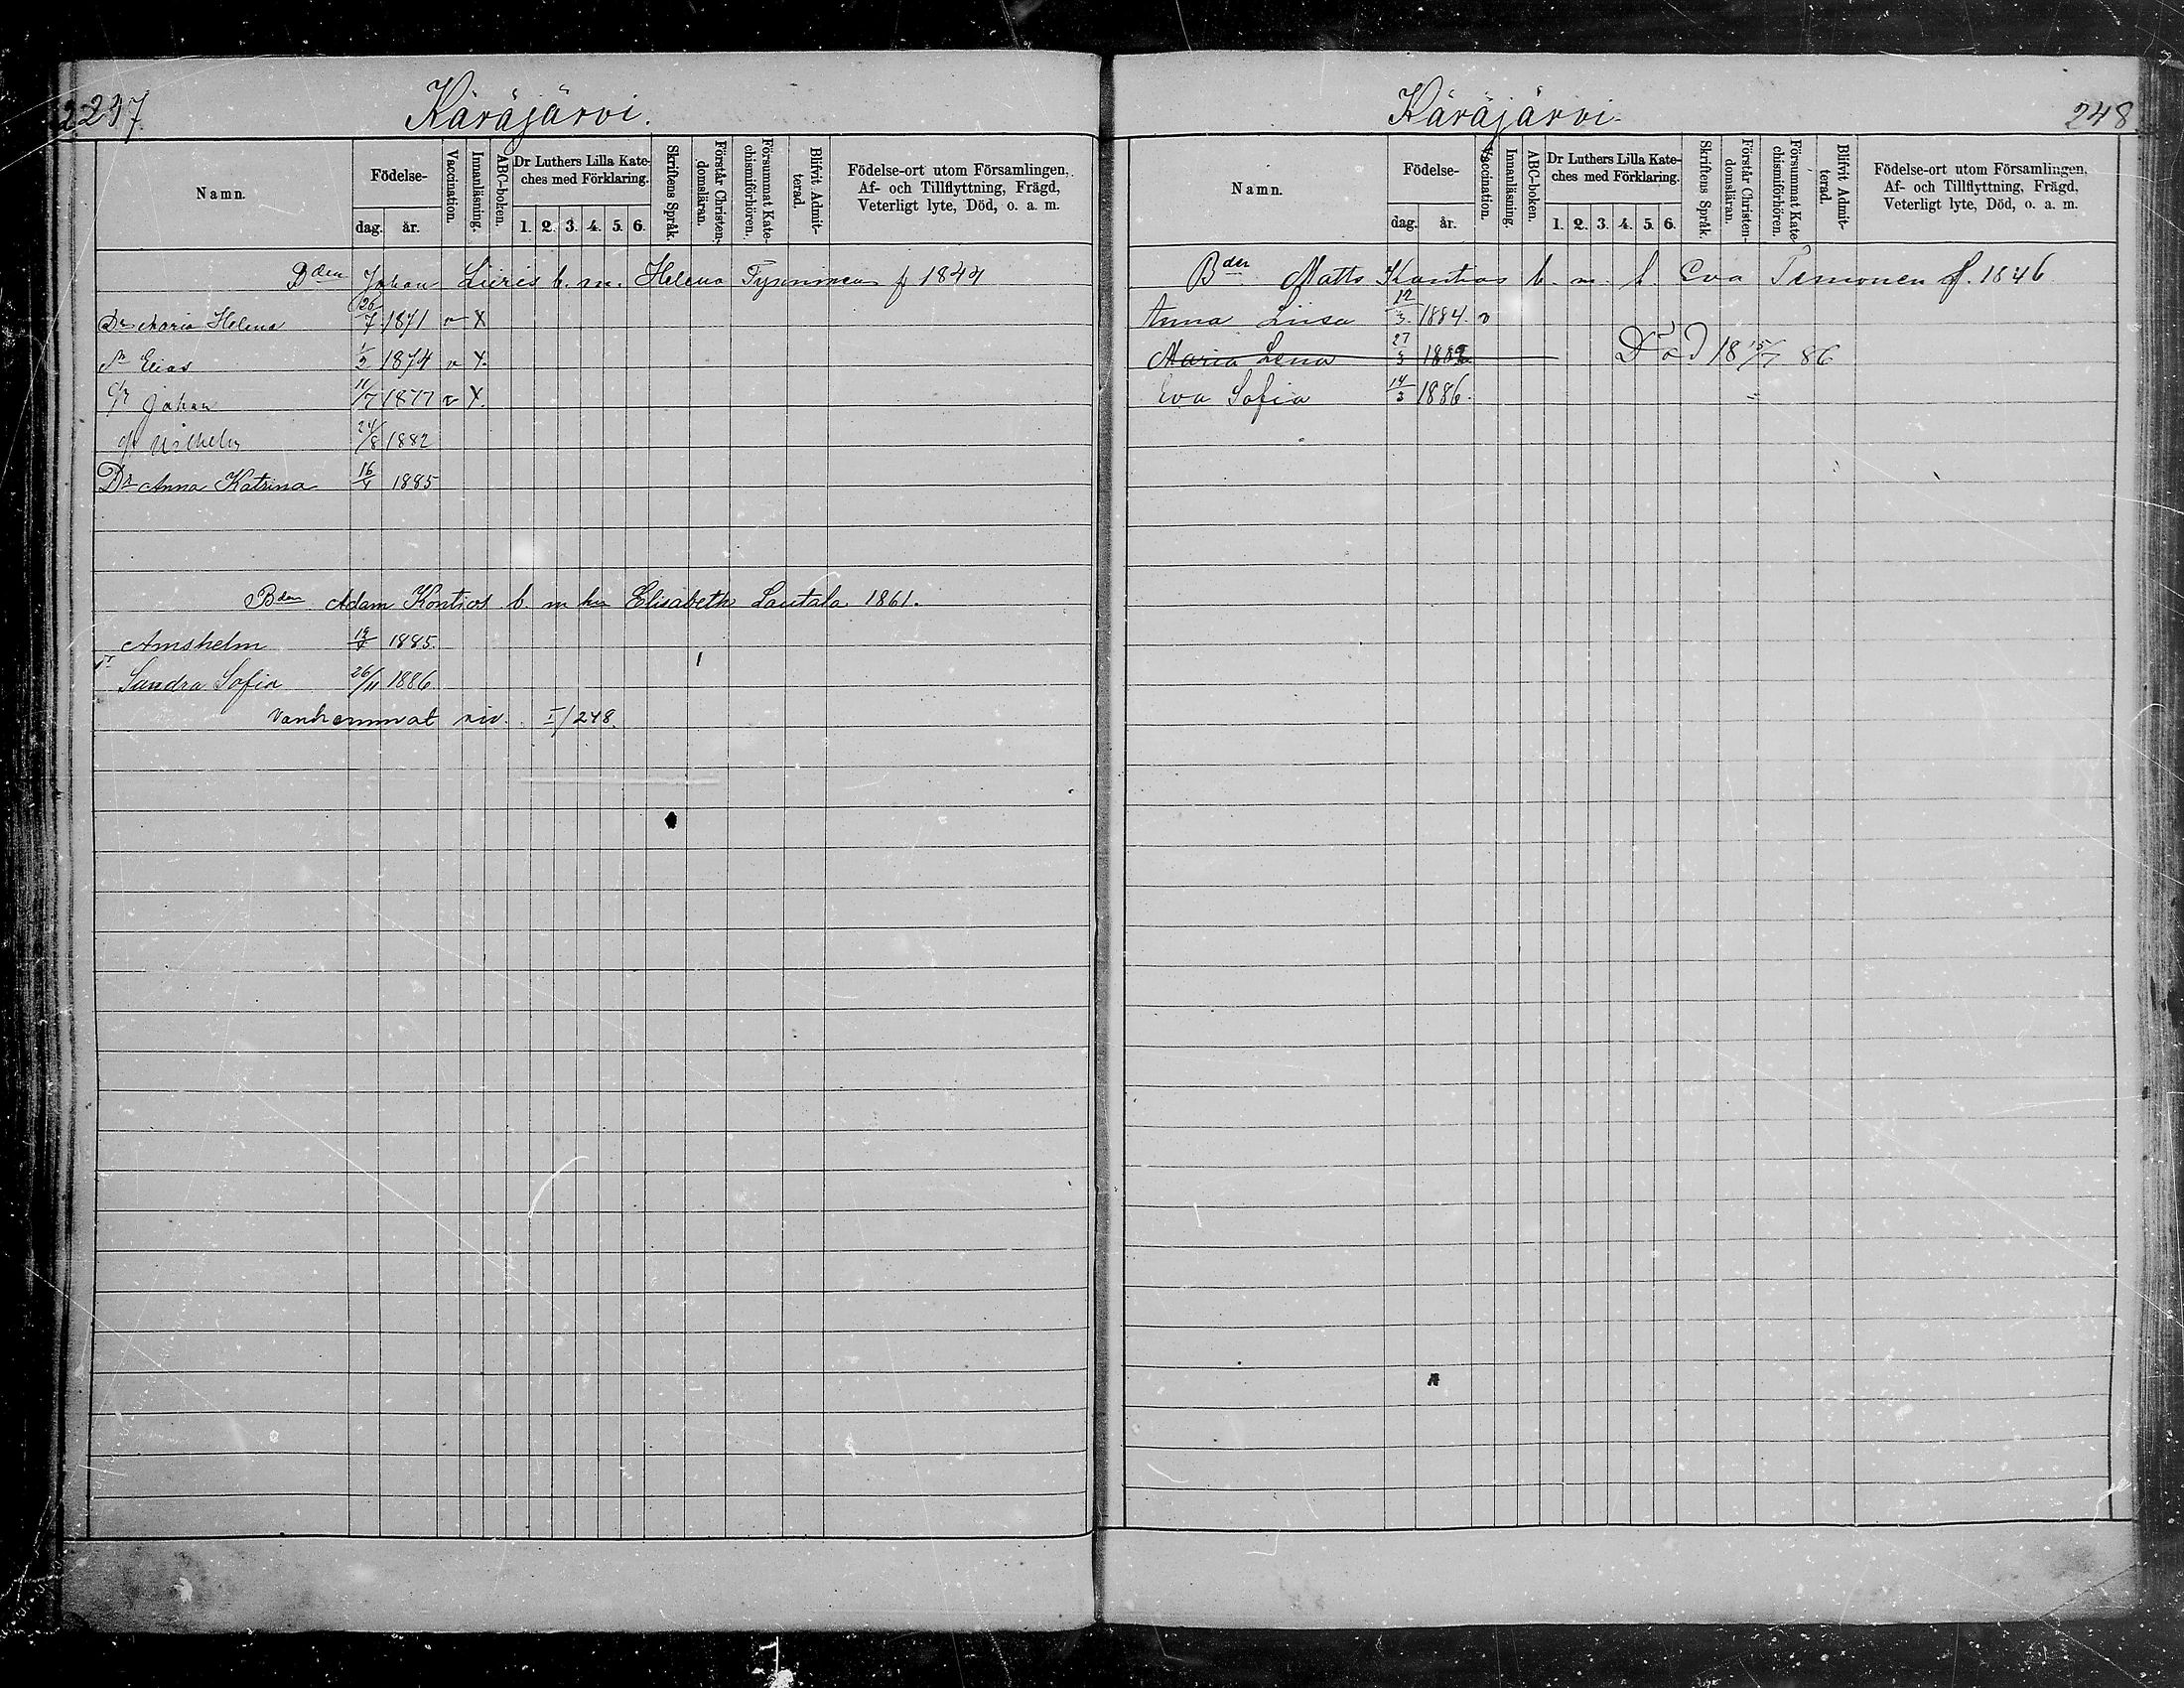 247
Käräjärvi.
Namn.
Födelse-
dag.
år.
Vaccination.
Innanläsning.
ABC-boken.
Dr Luthers Lilla Kate-
ches med Förklaring.
1. 2. 3. 4. 5. 6.
Skriftens Språk.
Förstår Christen-
domsläran.
Försummat Kate-
chismiförhören.
Blifvit Admit-
terad.
Födelse-ort utom Församlingen,
Af- och Tillflyttning, Frägd,
Veterligt lyte, Död, o. a. m.
Bden Johan b. m. Helena f 1844
Dr Maria Helena 26/7 1871 v X
Elias 1/2 1874 v X.
Johan 11/7 1877 v X.
Wilhelm 24/8 1882
Dr Anna Katrina 16/4 1885
Bden Adam Kontios b. m hu Elisabeth Lautala 1861.
Amshelm 1885.
Sandra Sofia 26/11 1886
Vanhemmat siv. I/248.
Käräjärvi.
248
Namn.
Födelse-
dag.
år.
Vaccination.
Innanläsning.
ABC-boken.
Dr Luthers Lilla Kate-
ches med Förklaring.
1. 2. 3. 4. 5. 6.
Skriftens Språk.
Förstår Christen-
domsläran.
Försummat Kate-
chismiförhören.
Blifvit Admit-
terad.
Födelse-ort utom Församlingen,
Af- och Tillflyttning, Frägd,
Veterligt lyte, Död, o. a. m.
Bden Matts Kontios b. m. h. Eva Timonen f. 1846
Anna Liisa 12/3 1884. v
Maria Lena 27/3 1882 Död 18 15/7 86
Eva Sofia 14/3 1886.